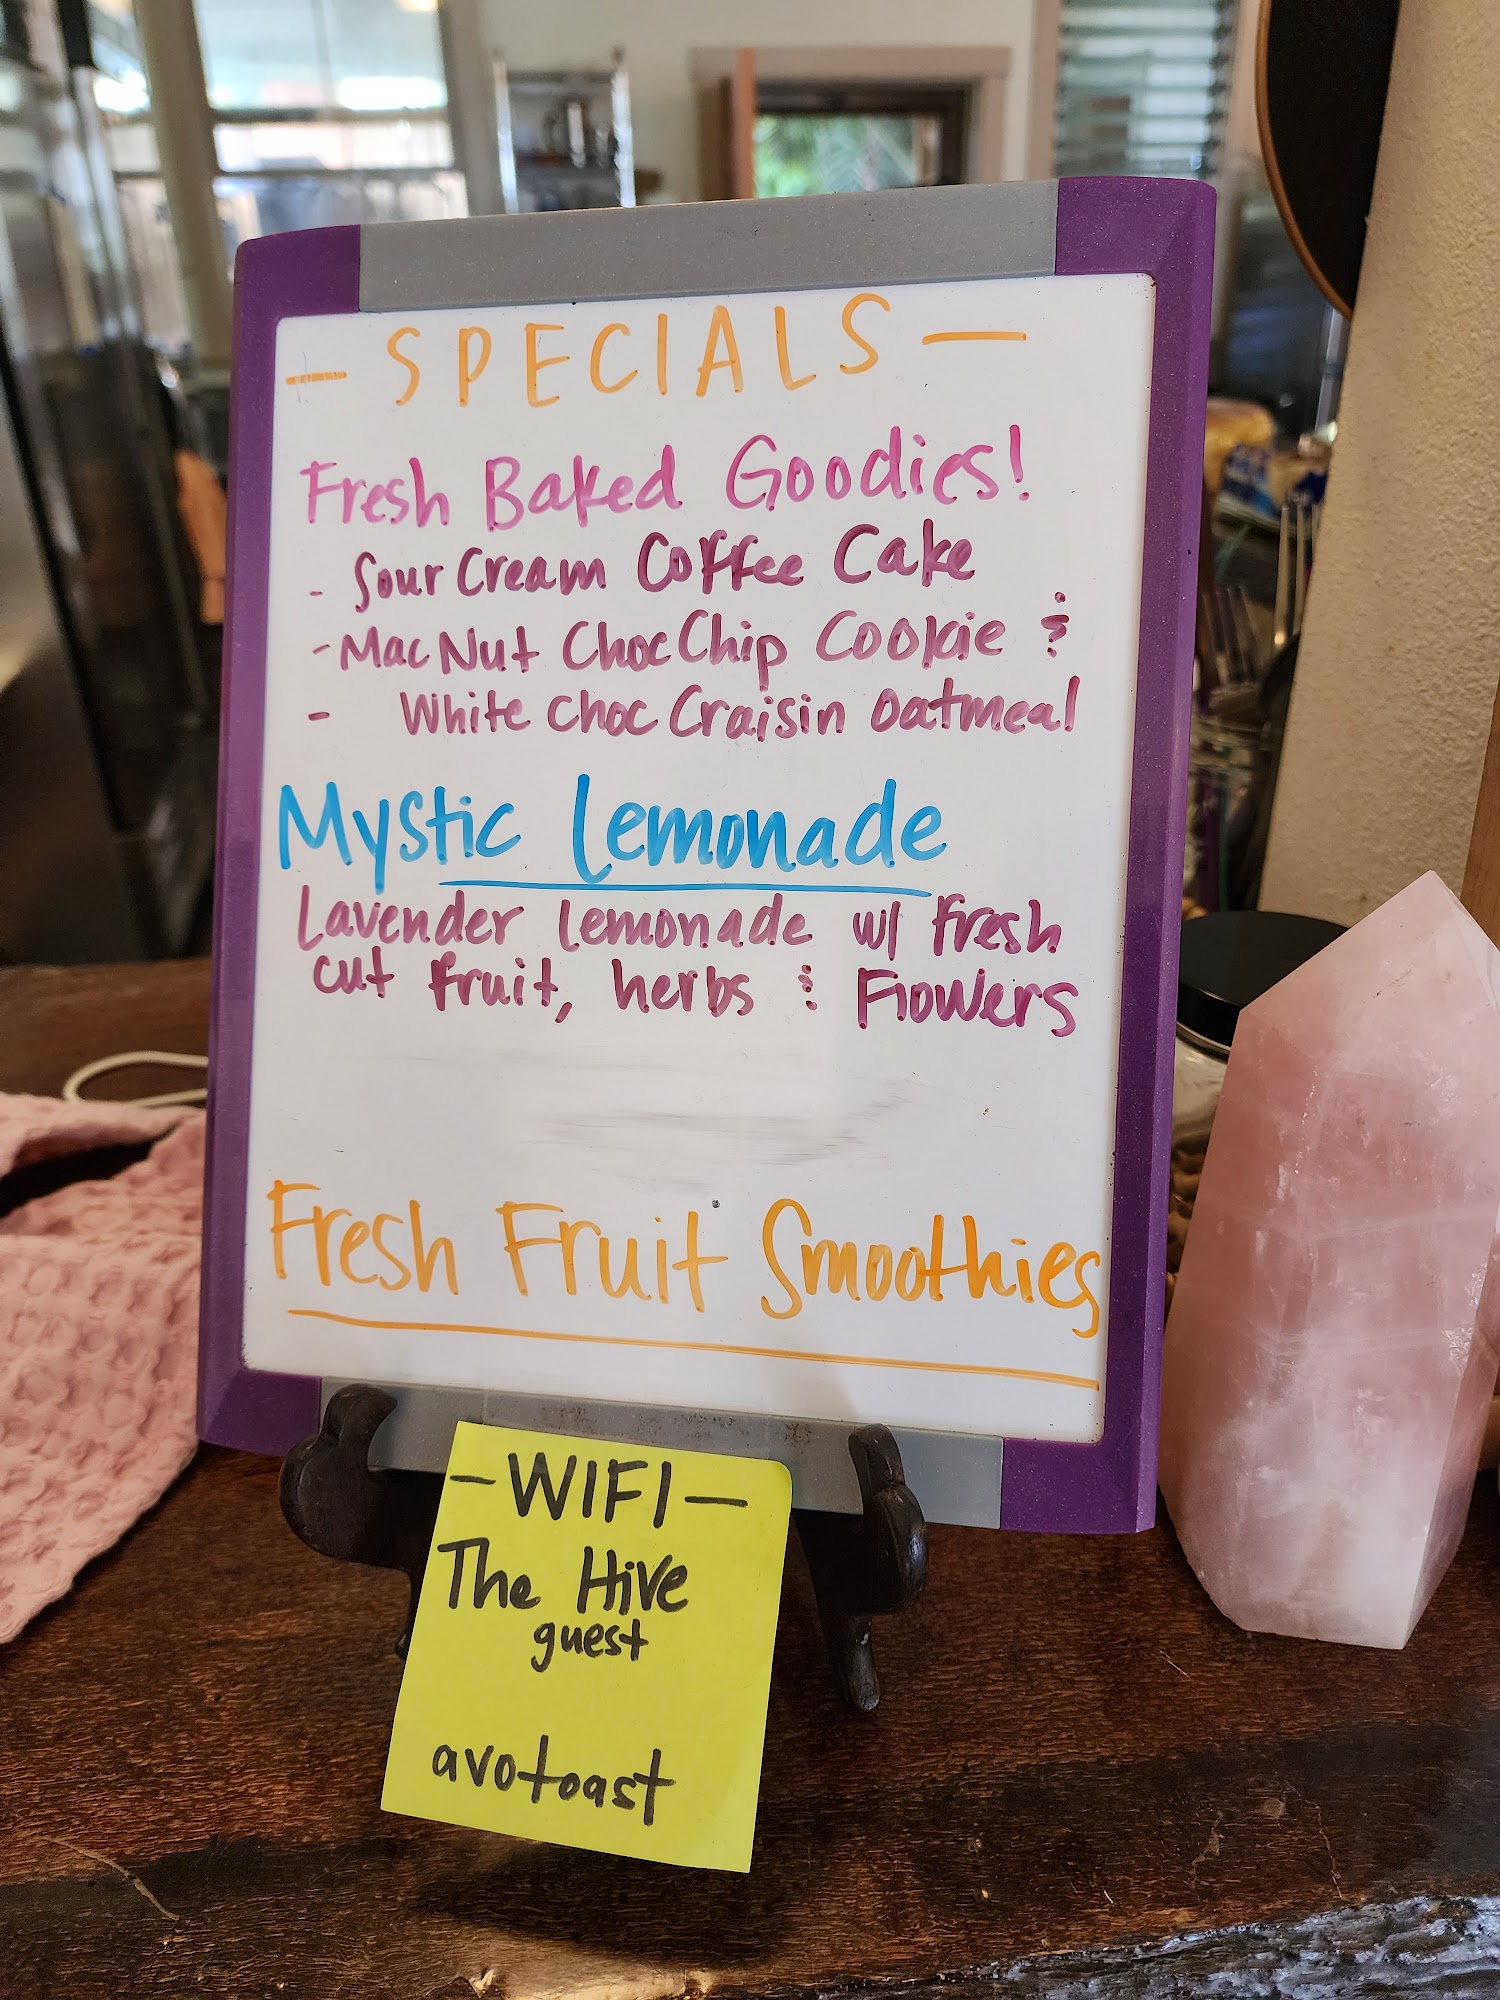 - SPECIALS -
Fresh Baked Goodies!
- Sour Cream Coffee Cake
- Mac Nut Choc Chip Cookie &
- White Choc Craisin Oatmeal
Mystic Lemonade
Lavender Lemonade w/ Fresh
cut fruit, herbs & Flowers
Fresh Fruit Smoothies
- WIFI -
The Hive
guest
avotoast